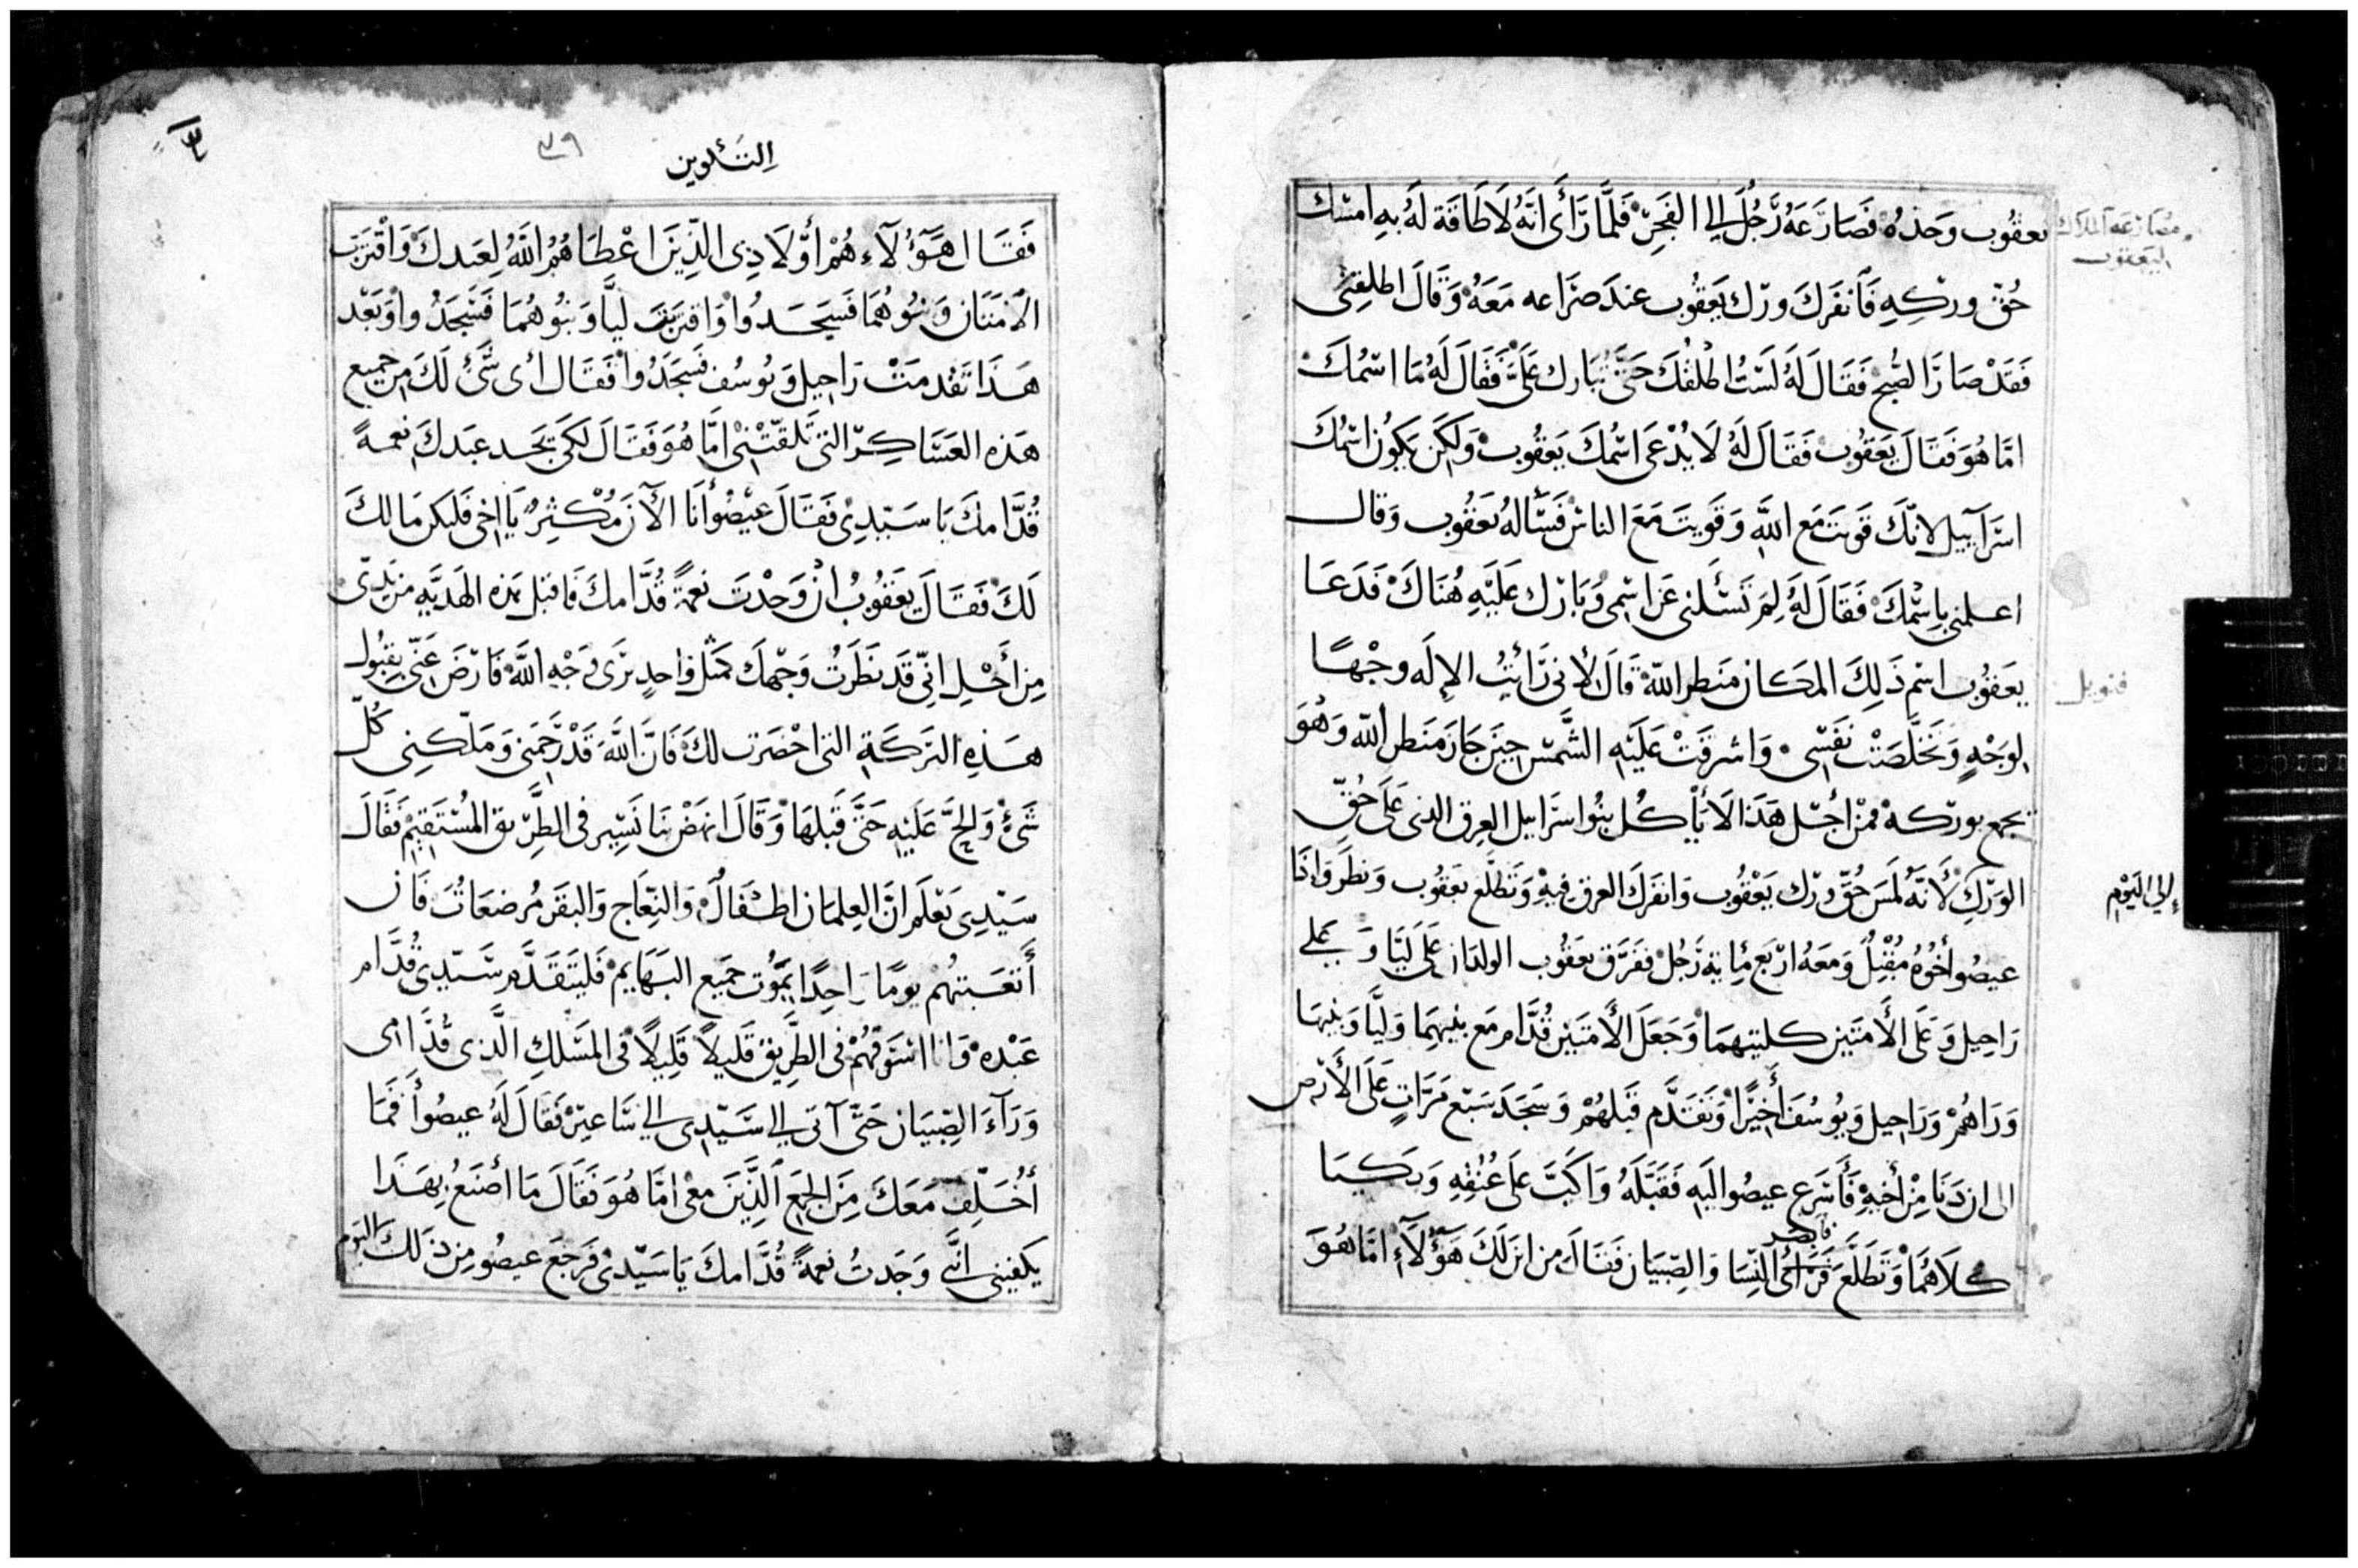 يعقُوب وحَدهُ فَصَارَعَهُ رَجُل الي الفَجِر فَلمَّا رَأَى انَّهُ لَا طَاقَة لَهُ بِهِ امسَك
مصَارعَة الملاك
ليَعقوب
حُقّ وِركِهِ فَانفَرَكَ ورك يَعقُوب عندَ صِرَاعه مَعَهُ وَقَالَ اطلِقنى
فَقَدْ صَارَ الصُّبح فَقَالَ لَهُ لَسْتُ اطلقُكَ حَتَّى تُبَارك عَلَىَّ فَقَالَ لَهُ مَا اسْمُكَ
امَّا هُوَ فَقَالَ يَعَقُوب فَقَالَ لَهُ لَا يُدْعَى اسْمُكَ يَعقُوب وَلَكِن يَكوُن اسْمُكَ
اسرَآييل لانّكَ قَويَت مَع اللَّهِ وَقَويتَ مَعَ الناسْ فَسَأَلهُ يَعَقُوب وَقال
اعلمني بِاسْمكَ فَقَالَ لَهُ لِمَ تَسْئَلني عَن اسْمي وَبَارَك عَلَيْهِ هُنَاكَ فَدَعَا
يَعَقُوب اسْم ذَلِكَ المَكان مَنظر اللّه قَالَ لأنى رَأئيتُ الإلَه وجْهًا
فنويل
لوَجْهٍ وَتَخَلَّصَتْ نَفْسِى وَاشرقَتْ عَلَيْهِ الشَّمسْ حِينَ جَازَ مَنظر اللّه وَهُوَ
يجمع بوركه فمنْ أجْل هَذا لَا يَأكُل بنُوا اسرَاييل العِرق الذى عَلَى حُقّ
الورَكِ لأَنَّهُ لمسَ حُقّ ورك يَعْقُوب وَانفَركَ العرق فيهِ وَتَطلَّع يَعقُوب وَنظَرَ وَاذَا
إلي اليَوْم
عيصُوا أخُوُهُ مُقْبلٌ وَمَعَهُ ارْبَع مِاية رَجُل ففَرَّق يَعَقُوب الولدَان عَلَى لَيَّا وَعَلي
رَاحِيل وَعَلى الأمَتَين كلتيهمَا وَجَعَلَ الأمَتَين قُدَّام مَع بنيهِمَا وَليَّا وَبنيهَا
وَرَاهُمْ وَرَاحِيل وَيوُسُفَ أخِيرًا وَتَقدَّم قَبلهُمْ وَسَجَدَ سَبْع مَرَّاتٍ عَلَى الأرْض
الى ان دَنَا مِنْ أخيهِ فَأَسْرَع عيصُوا اليَهِ فَقَبَّلَهُ وَاكَبَّ عَلى عُنُقِهِ وَبكيَا
كلاهُمَا وَتَطَلَّعَ فَرَأَى النِّسَا وَالصِّبيَان فقَالَ من اينَ لَكَ هَؤُلآءِ امَّا هُوَ
التَكوين
٣٩
فَقَال هَؤُلآءِ هُمْ أوْلَادِى الذِينَ اعْطَاهُمُ اللَّهُ لِعَبدكَ وَاقْتَرَبَ
الأمَتَان وَبنُوهُمَا فَسَجَدُوا وَاقتَربَت ليَّا وَبنُوهُمَا فَسَجَدُوا وَبَعْد
هَذَا تَقْدمَتْ رَاحِيل وَيوُسُف فَسَجَدُوا فقَال أى شَىْ لَكَ مِن جَميع
هَذه العَسَاكِر التى تَلقّتنْى امَّا هُوَ فَقَالَ لكَى يَجَد عَبدكَ نعمةً
قُدَّامكَ يَا سَيّدِى فَقَالَ عيْصُوا أنَا الآنَ مُكثِرٌ يَا اخى فَليَكن مَا لكَ
لَكَ فَقَالَ يَعَقُوبُ انْ وَجْدتَ نعمةً قُدَّامكَ فَاقبَل هَذه الهَديَّه مِن يَدِىْ
مِن أجْل إنِّي قَد نَظَرَتُ وَجْهكَ كَمثل وَاحِدٍ يَرَى وَجْهِ اللَّهِ فَارْضَ عَنِّي بِقبُول
هَذِهِ البَركَةِ التى احْضَرَت لكَ فَانَّ اللَّهَ قَدْ رَحَمَنى وَمَلّكنِى كُلّ
شَىْ وَالحَّ عَلَيْهِ حَتَّى قَبلهَا وَقَالَ انهَضْ بنَا نَسِير في الطَّريق المُسْتَقيم فَقَالَ
سَيّدِى يَعْلَم انَّ الغِلمَان اطْفَالٌ وَالنِّعَاج وَالبقَر مُرضعَاتُ فَان
أتعَبتهُم يومًا وَاحِدًا يَمَوُت جَمَيع البَهَايم فَليَتَقَدَّم سَيّدِى قُدَّام
عَبْده وَانا اسْوَقهُمْ في الطَّريق قَليلاً قَليلاً في المَسْلكِ الَّذى قُدَّامى
وَرَآءَ الصِّبيَان حَتَّى آتى الي سَيّدِى الي سَاعيرْ فَقَالَ لَهُ عيصُوا فَمَا
أخُلِّف مَعَكَ مِنَ الجمَع الَّذِينَ مَعى امَّا هُوَ فَقَالَ مَا أصْنَعُ بِهَذَا
يكفينى انَّى وَجَدتُ نعمةً قُدَّامكَ يَا سَيّدِى فَرَجَعَ عيصُو مِن ذَلكَ اليَوم